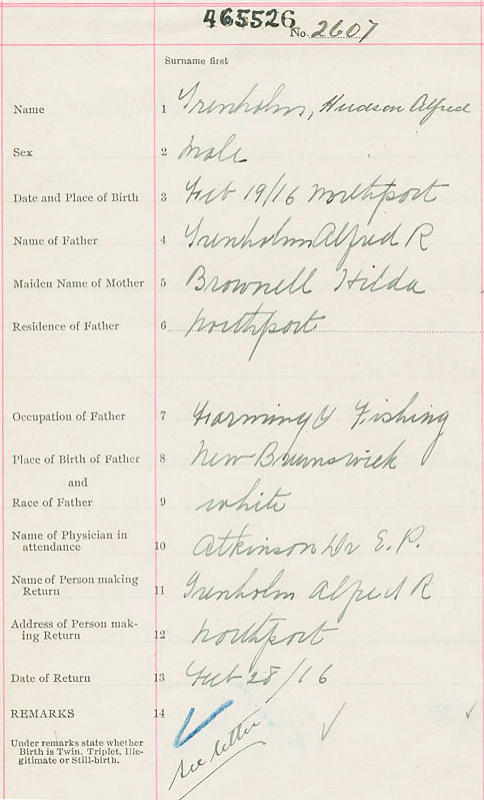 465526
No. 2607
Surname first
Name 1 Trenholm, Hudson Alfred
Sex 2 Male
Date and Place of Birth 3 Feb 19/16 Northport
Name of Father 4 Trenholm Alfred R
Maiden Name of Mother 5 Brownell Hilda
Residence of Father 6 Northport
Occupation of Father 7 Farming & Fishing
Place of Birth of Father 8 New Brunswick
and
Race of Father 9 white
Name of Physician in
attendance 10 Atkinson Dr E. P.
Name of Person making
Return 11 Trenholm Alfred R
Address of Person mak-
ing Return 12 Northport
Date of Return 13 Feb 28/16
REMARKS 14
Under remarks state whether
Birth is Twin, Triplet, Ille-
gitimate or Still-birth.
see letter